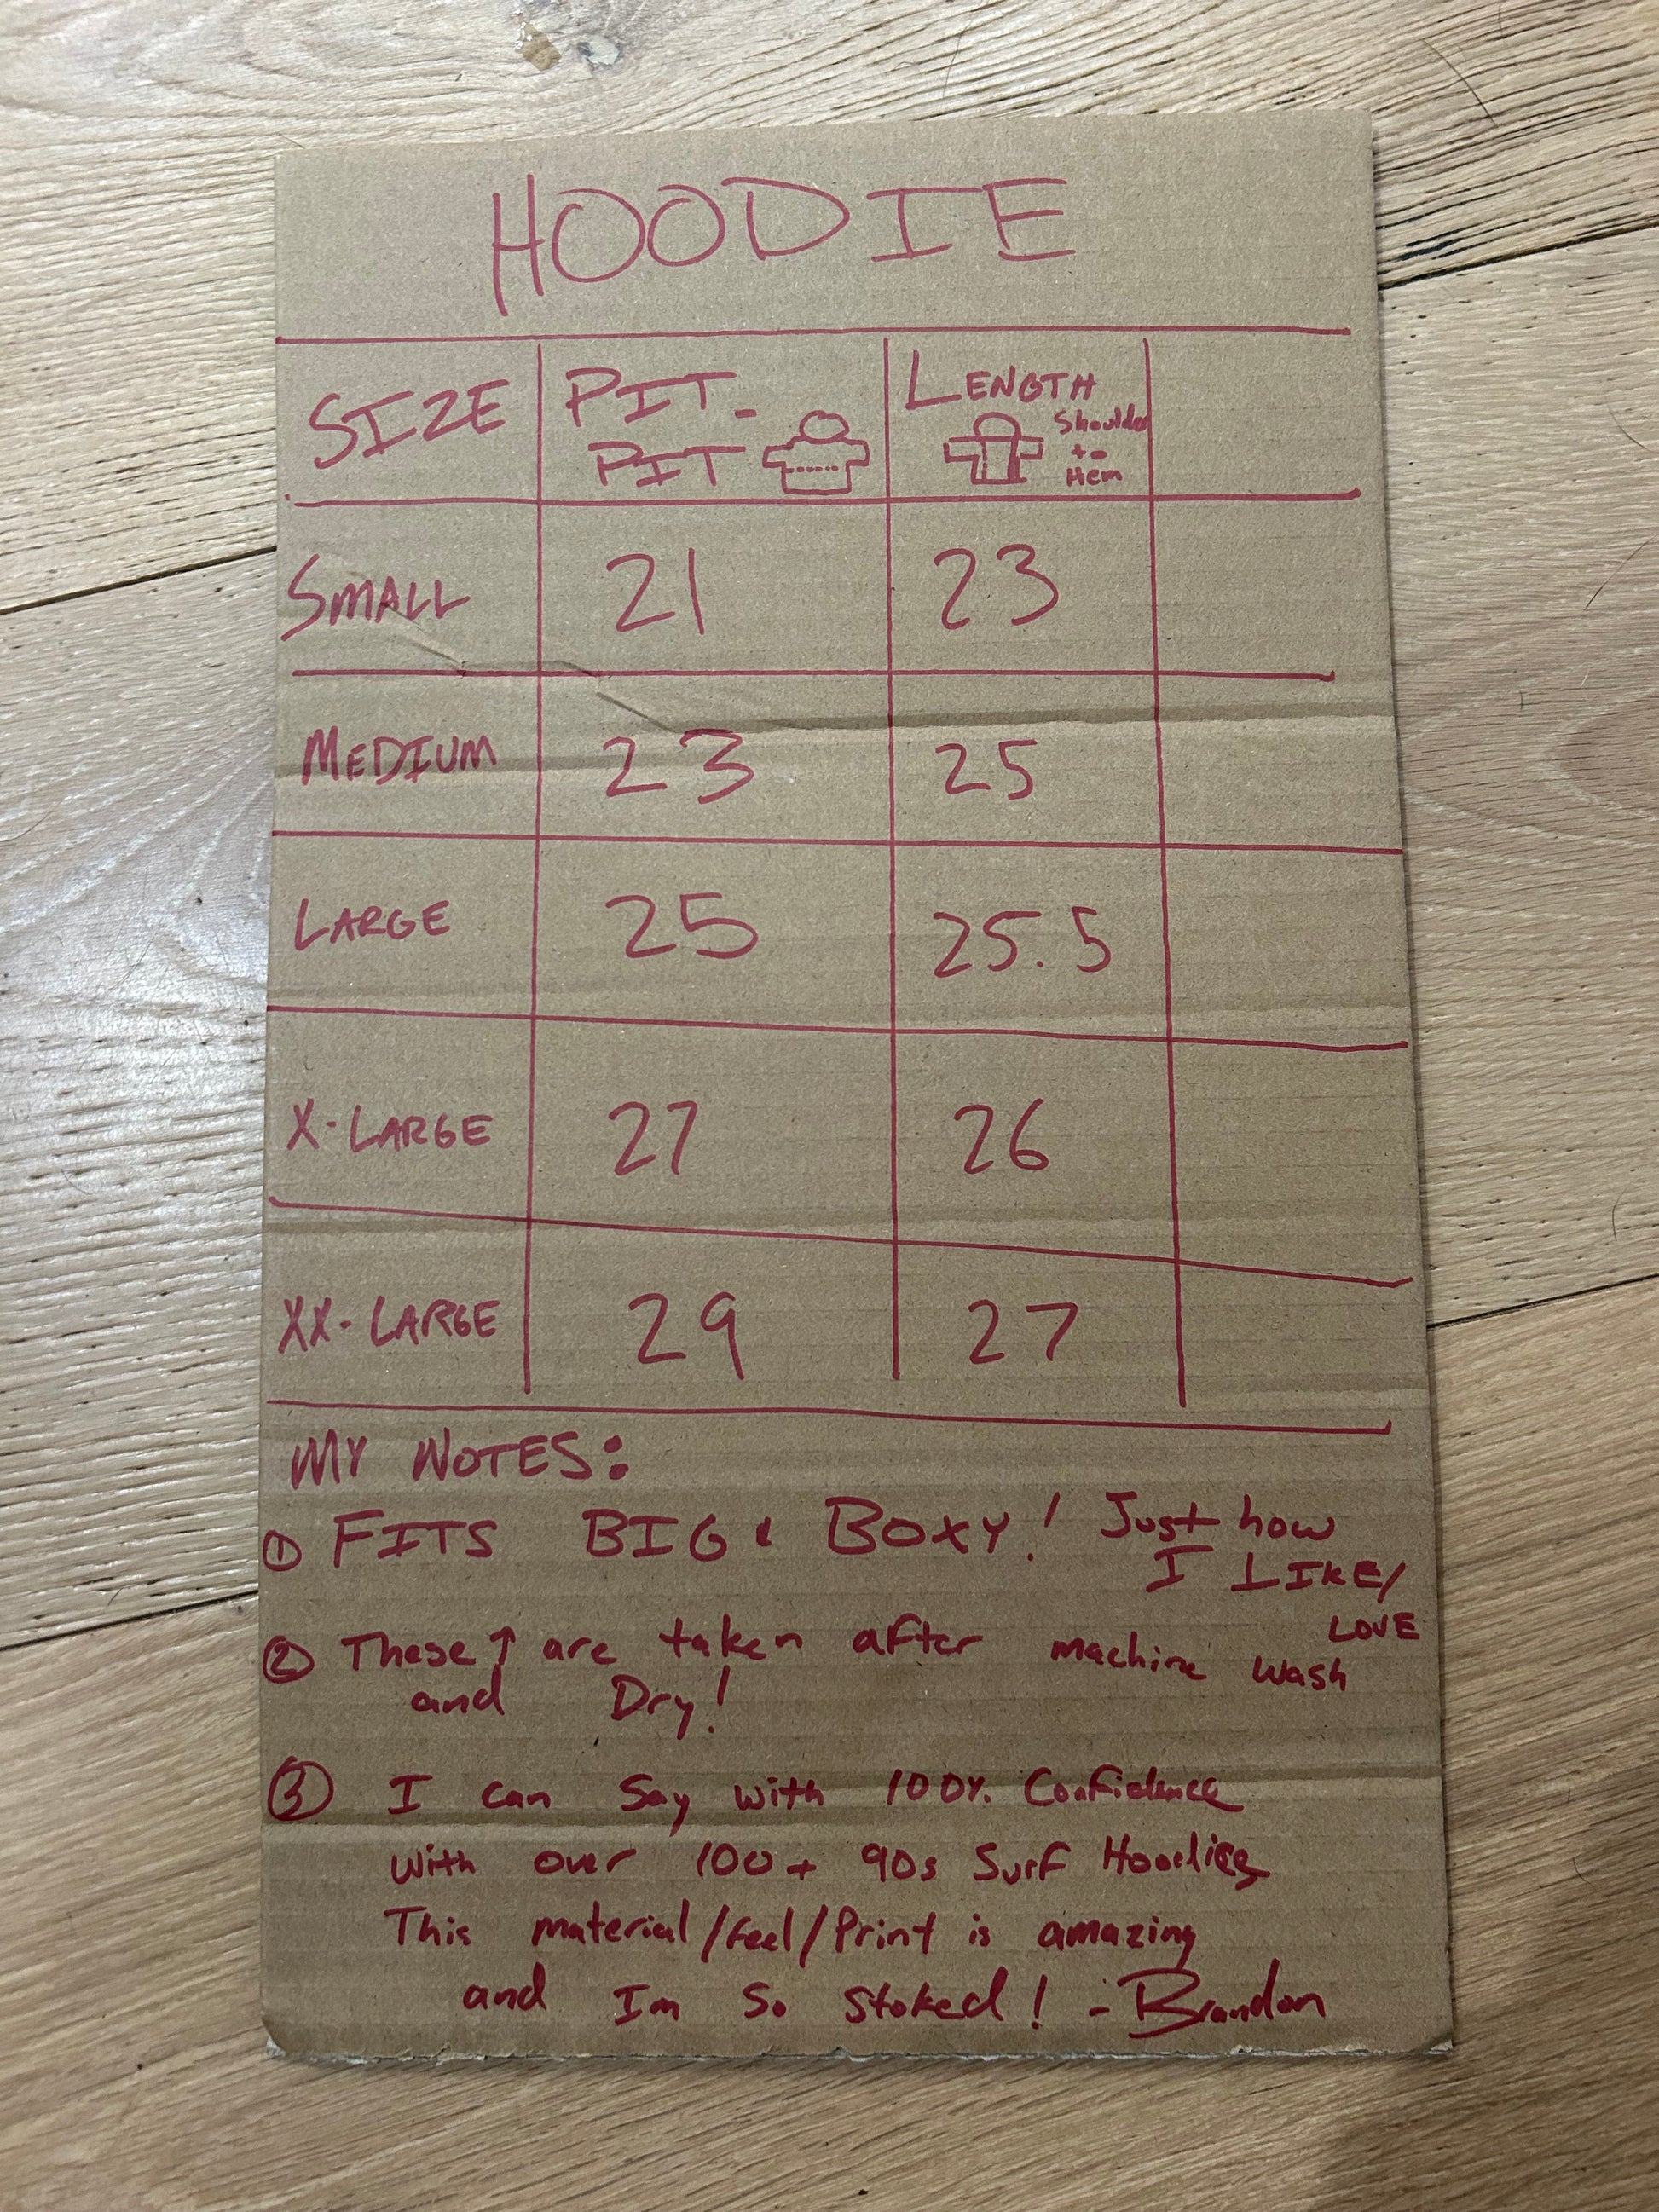 HOODIE
SIZE PIT- LENGTH
PIT Shoulder
to
Hem
SMALL 21 23
MEDIUM 23 25
LARGE 25 25.5
X-LARGE 27 26
XX-LARGE 29 27
MY NOTES:
① FITS BIG & BOXY! Just how
I LIKE/
LOVE
② These↑ are taken after machine wash
and Dry!
③ I can say with 100% Confidence
with over 100+ 90s Surf Hoodies
This material/feel/Print is amazing
and Im so stoked! -Brandon